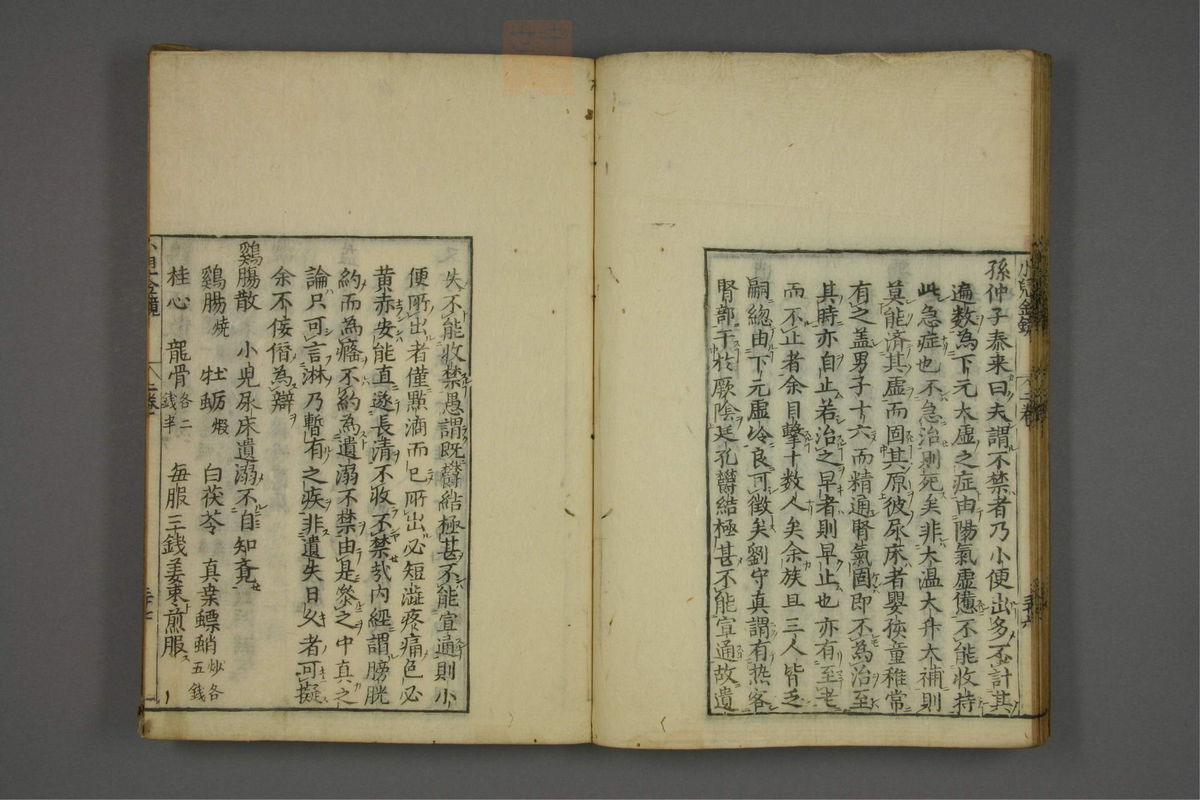 孫仲子泰来曰夫謂不禁者乃小便出多不計其
遍数為下元大虚之症由陽氣虚憊不能收持
此急症也不急治則死矣非大温大升大補則
莫能済其虚而固其原彼尿床者嬰孩童稚常
有之盖男子十六而精通腎氣固即不為治至
其時亦自止若治之早者則早止也亦有至老
而不止者余目擊十数人矣余族且三人皆乏
嗣總由下元虚冷良可徴矣劉守真謂有热客
腎部干於厥陰廷孔欝結極甚不能宣通故遺
失不能收禁愚謂既欝結極甚不能宣通則小
便所出者僅點滴而已所出必短澁疼痛色必
黄赤安能直遂長清不收不禁哉内經謂膀胱
約而為癃不約為遺溺不禁由是叅之中真之
論只可言淋乃暫有之疾非遺失日久者可擬
余不佞僭為辯
鷄腸散 小児尿床遺溺不自知竟
鷄腸焼 牡蛎煅 白茯苓 真桒螵蛸炒各五錢
桂心 龍骨各二錢半 毎服三錢姜枣煎服